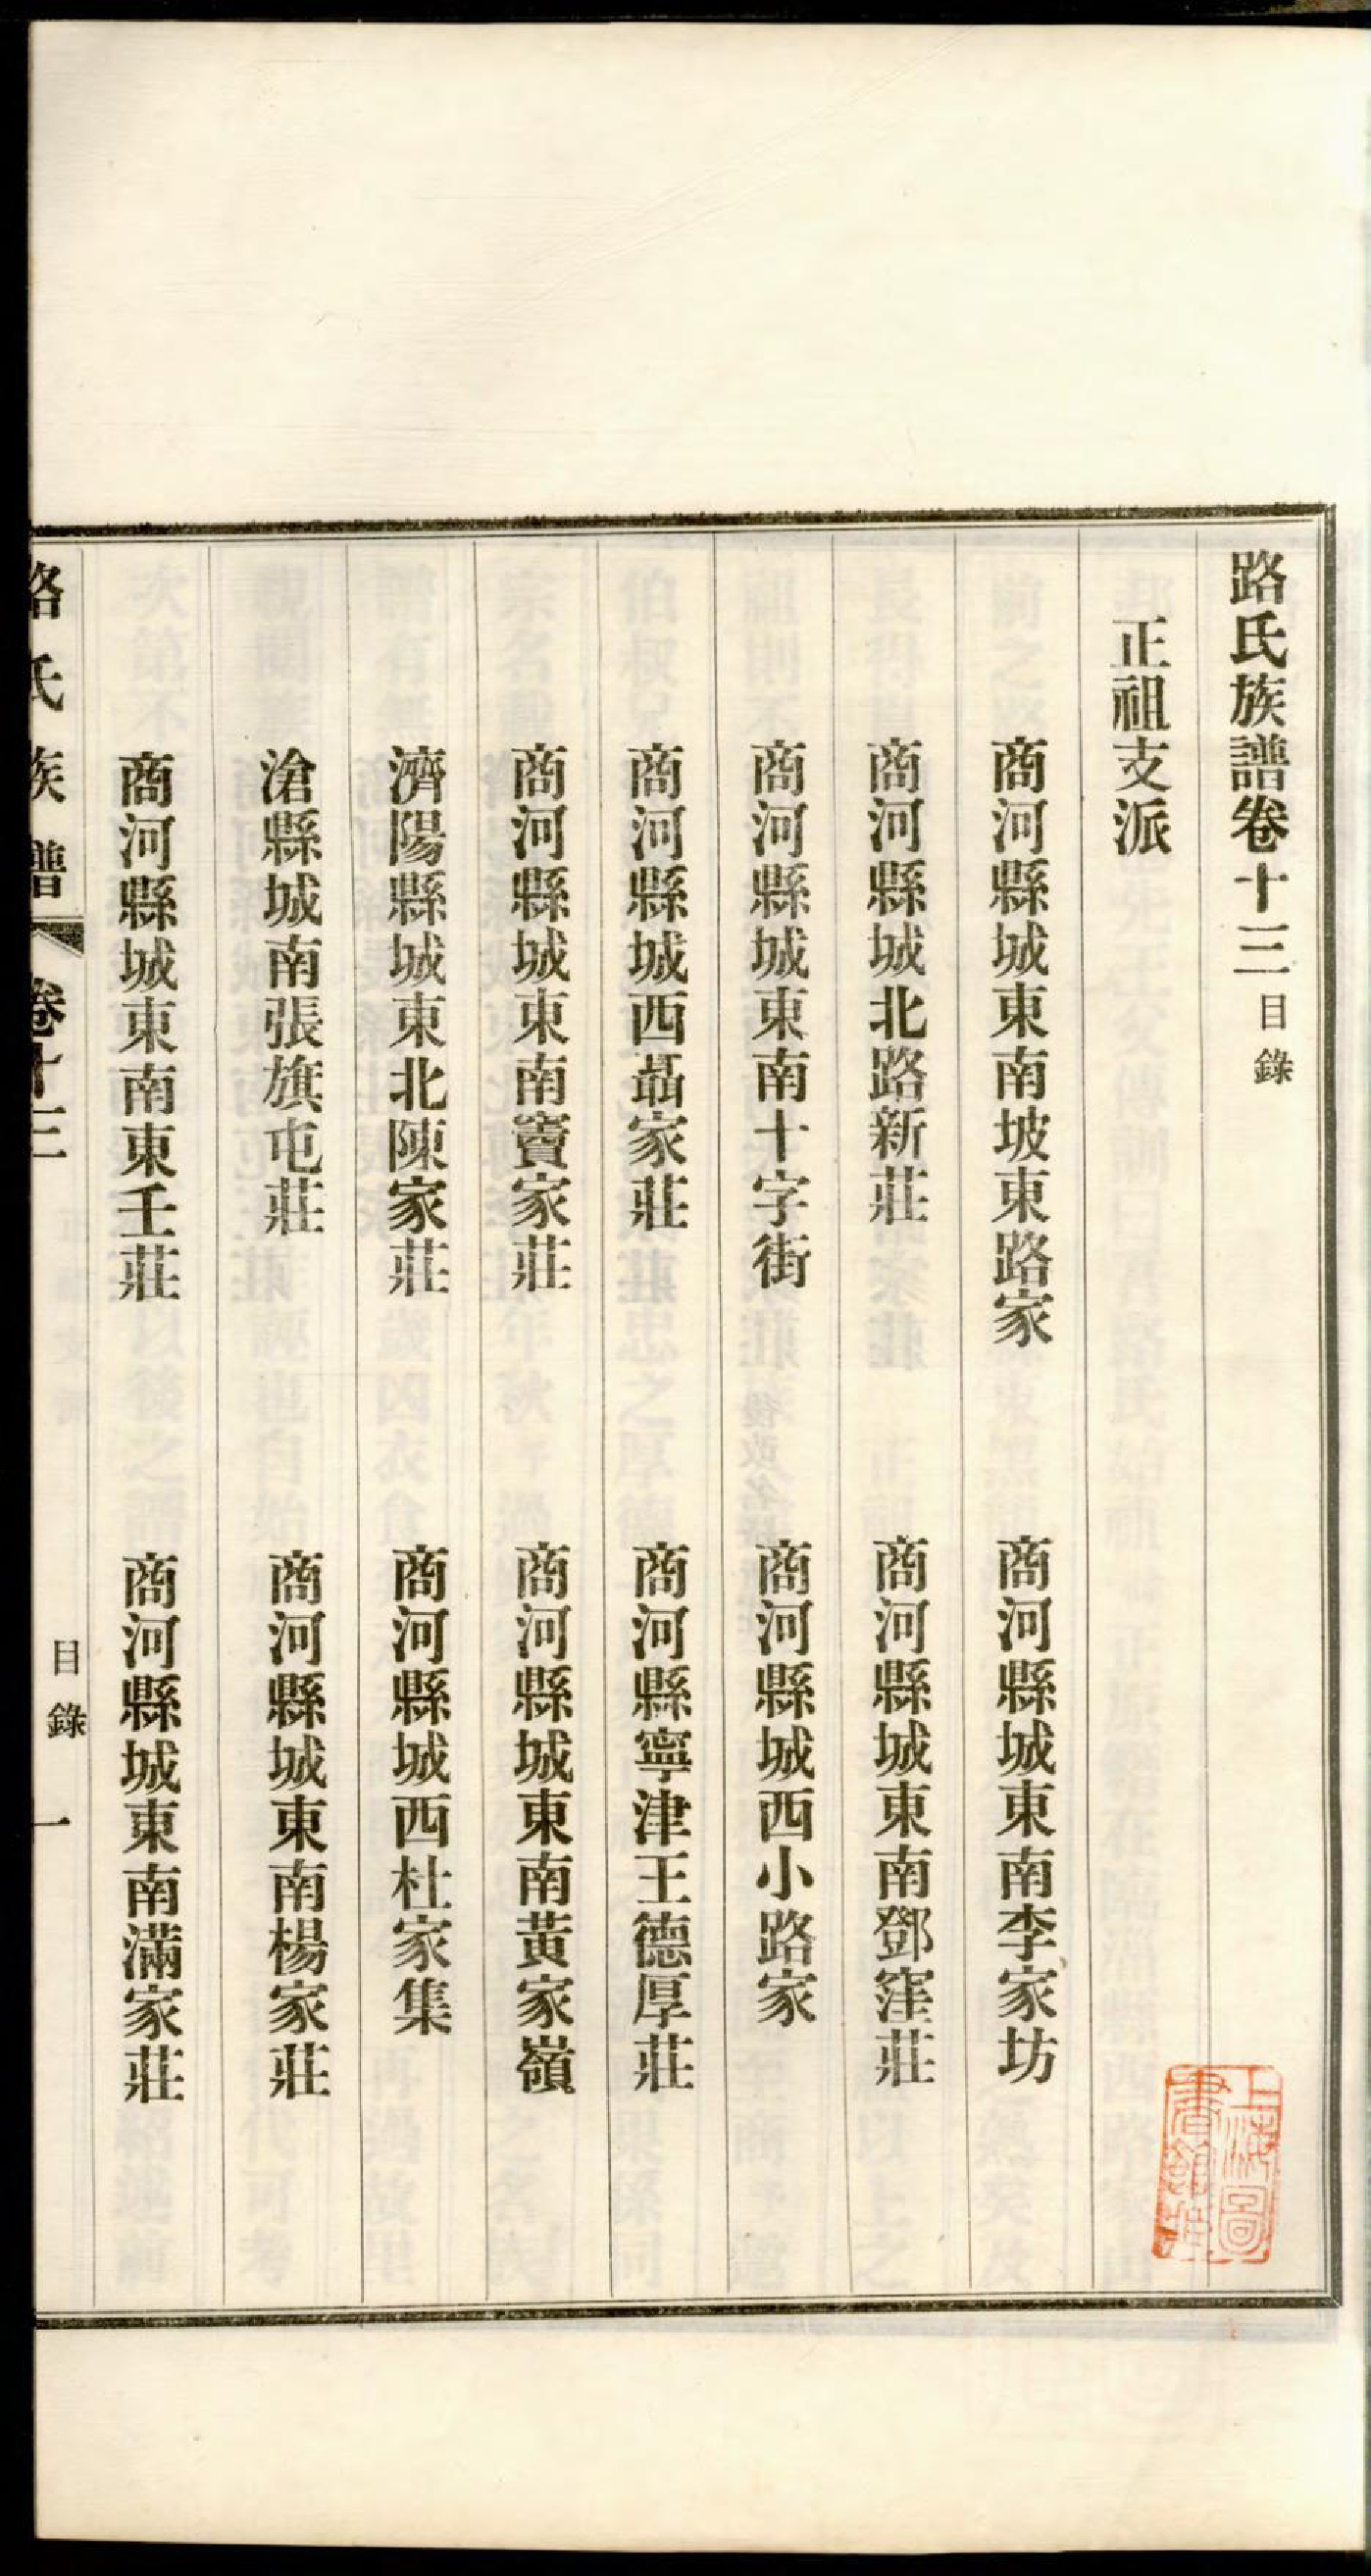 路氏族譜卷十三目錄
正祖支派
商河縣城東南坡東路家　商河縣城東南李家坊
商河縣城北路新莊　商河縣城東南鄧窪莊
商河縣城東南十字街　商河縣城西小路家
商河縣城西聶家莊　商河縣寧津王德厚莊
商河縣城東南竇家莊　商河縣城東南黃家嶺
濟陽縣城東北陳家莊　商河縣城西杜家集
滄縣城南張旗屯莊　商河縣城東南楊家莊
商河縣城東南東壬莊　商河縣城東南滿家莊
路氏族譜　卷十三　目錄　一
上海圖
書館藏